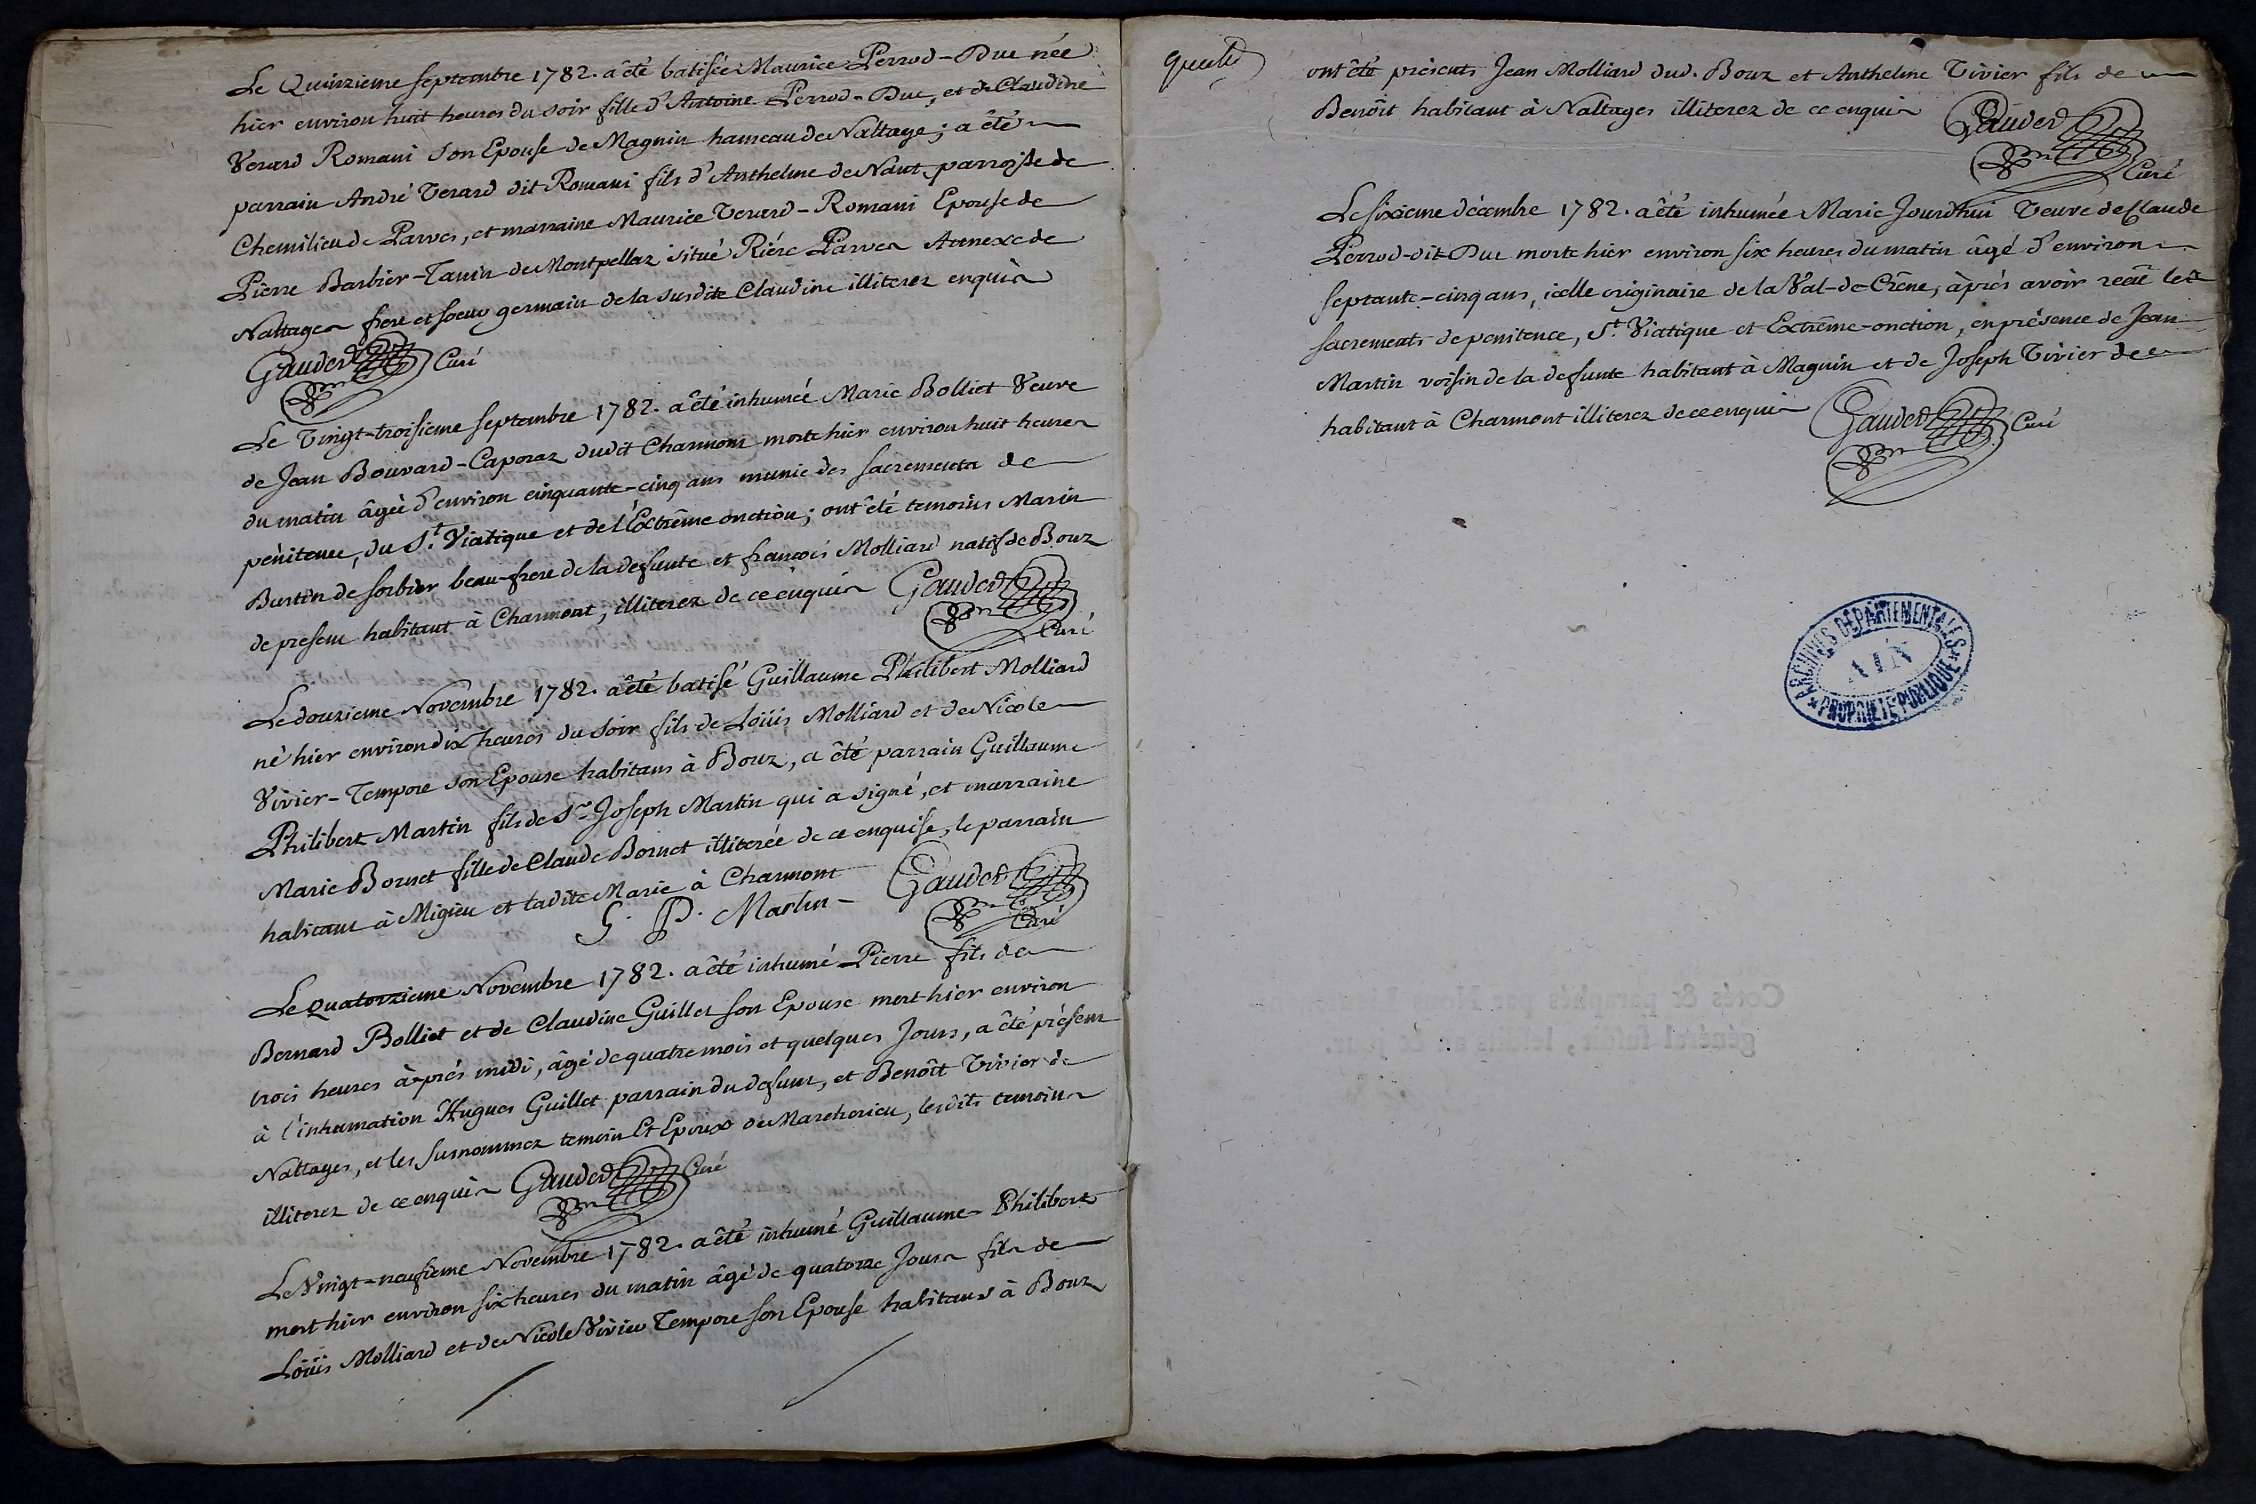 Le Quinzieme septembre 1782. a été batisée Maurice Perrod-Duc née
hier environ huit heures du soir fille d'Antoine Perrod-Duc, et de Claudine
Verard Romani son Epouse de Magnin hameau de Nattage; a été
parrain André Verard dit Romani fils d'Anthelme de Nant parroisse de
Chemilieu de Parves, et marraine Maurice Verard-Romani Epouse de
Pierre Barbier-Tanin de Montpellaz situé Riére Parves Annexe de
Nattages frere et soeur germain de la susdite Claudine illiterez enquis
Gauded Curé
Le Vingt-troisieme septembre 1782. a été inhumée Marie Bolliet Veuve
de Jean Bouvard-Caporaz dudit Charmont morte hier environ huit heures
du matin âgée d'environ cinquante-cinq ans munie des sacrements de
pénitence, du St. Viatique et de l'Extrême onction; ont été temoins Marin
Burtin de sorbier beau-frere de la defunte et françois Molliard natif de Bouz
de present habitant à Charmont, illiterez de ce enquis Gauded
Curé
Le douzieme Novembre 1782. a été batisé Guillaume Philibert Molliard
né hier environ dix heures du soir fils de Loüis Molliard et de Nicole
Vivier-Tempore son Epouse habitans à Bouz, a été parrain Guillaume
Philibert Martin fils de Sr Joseph Martin qui a signé, et marraine
Marie Bornet fille de Claude Bornet illiterée de ce enquise, le parrain
habitant à Migieu et ladite Marie à Charmont Gauded
G. P. Martin - Curé
Le quatorzieme Novembre 1782. a été inhumé Pierre fils de
Bernard Bolliet et de Claudine Guillet son Epouse mort hier environ
trois heures àprés midi, âgé de quatre mois et quelques Jours, a été présent
à l'inhumation Hugues Guillet parrain du defunt, et Benoît Vivier de
Nattages, et les susnommez temoin Et Epoux de Marcherieu, lesdits temoins
illiterez de ce enquis Gauded Curé
Le Vingt-neufieme Novembre 1782. a été inhumé Guillaume Philibert
mort hier environ six heures du matin âgé de quatorze Jours fils de
Loüis Molliard et de Nicole Vivier Tempore son Epouse habitans à Bouz
ont été présents Jean Molliard dud. Bouz et Anthelme Vivier fils de
Benoît habitant à Nattages illiterez de ce enquis Gauded
Curé
Le sixieme décembre 1782. a été inhumée Marie Jourdhui Veuve de Claude
Perrod-dit-Duc morte hier environ six heures du matin âgé d'environ
septante-cinq ans, icelle originaire de la Val-de-Crêne, àprés avoir recu les
sacrements de penitence, St. Viatique et Extrême-onction, en présence de Jean
Martin voisin de la defunte habitant à Magnin et de Joseph Vivier de
habitant à Charmont illiterez de ce enquis Gauded Curé
ARCHIVES DÉPARTEMENTALES
AIN
PROPRIÉTÉ PUBLIQUE